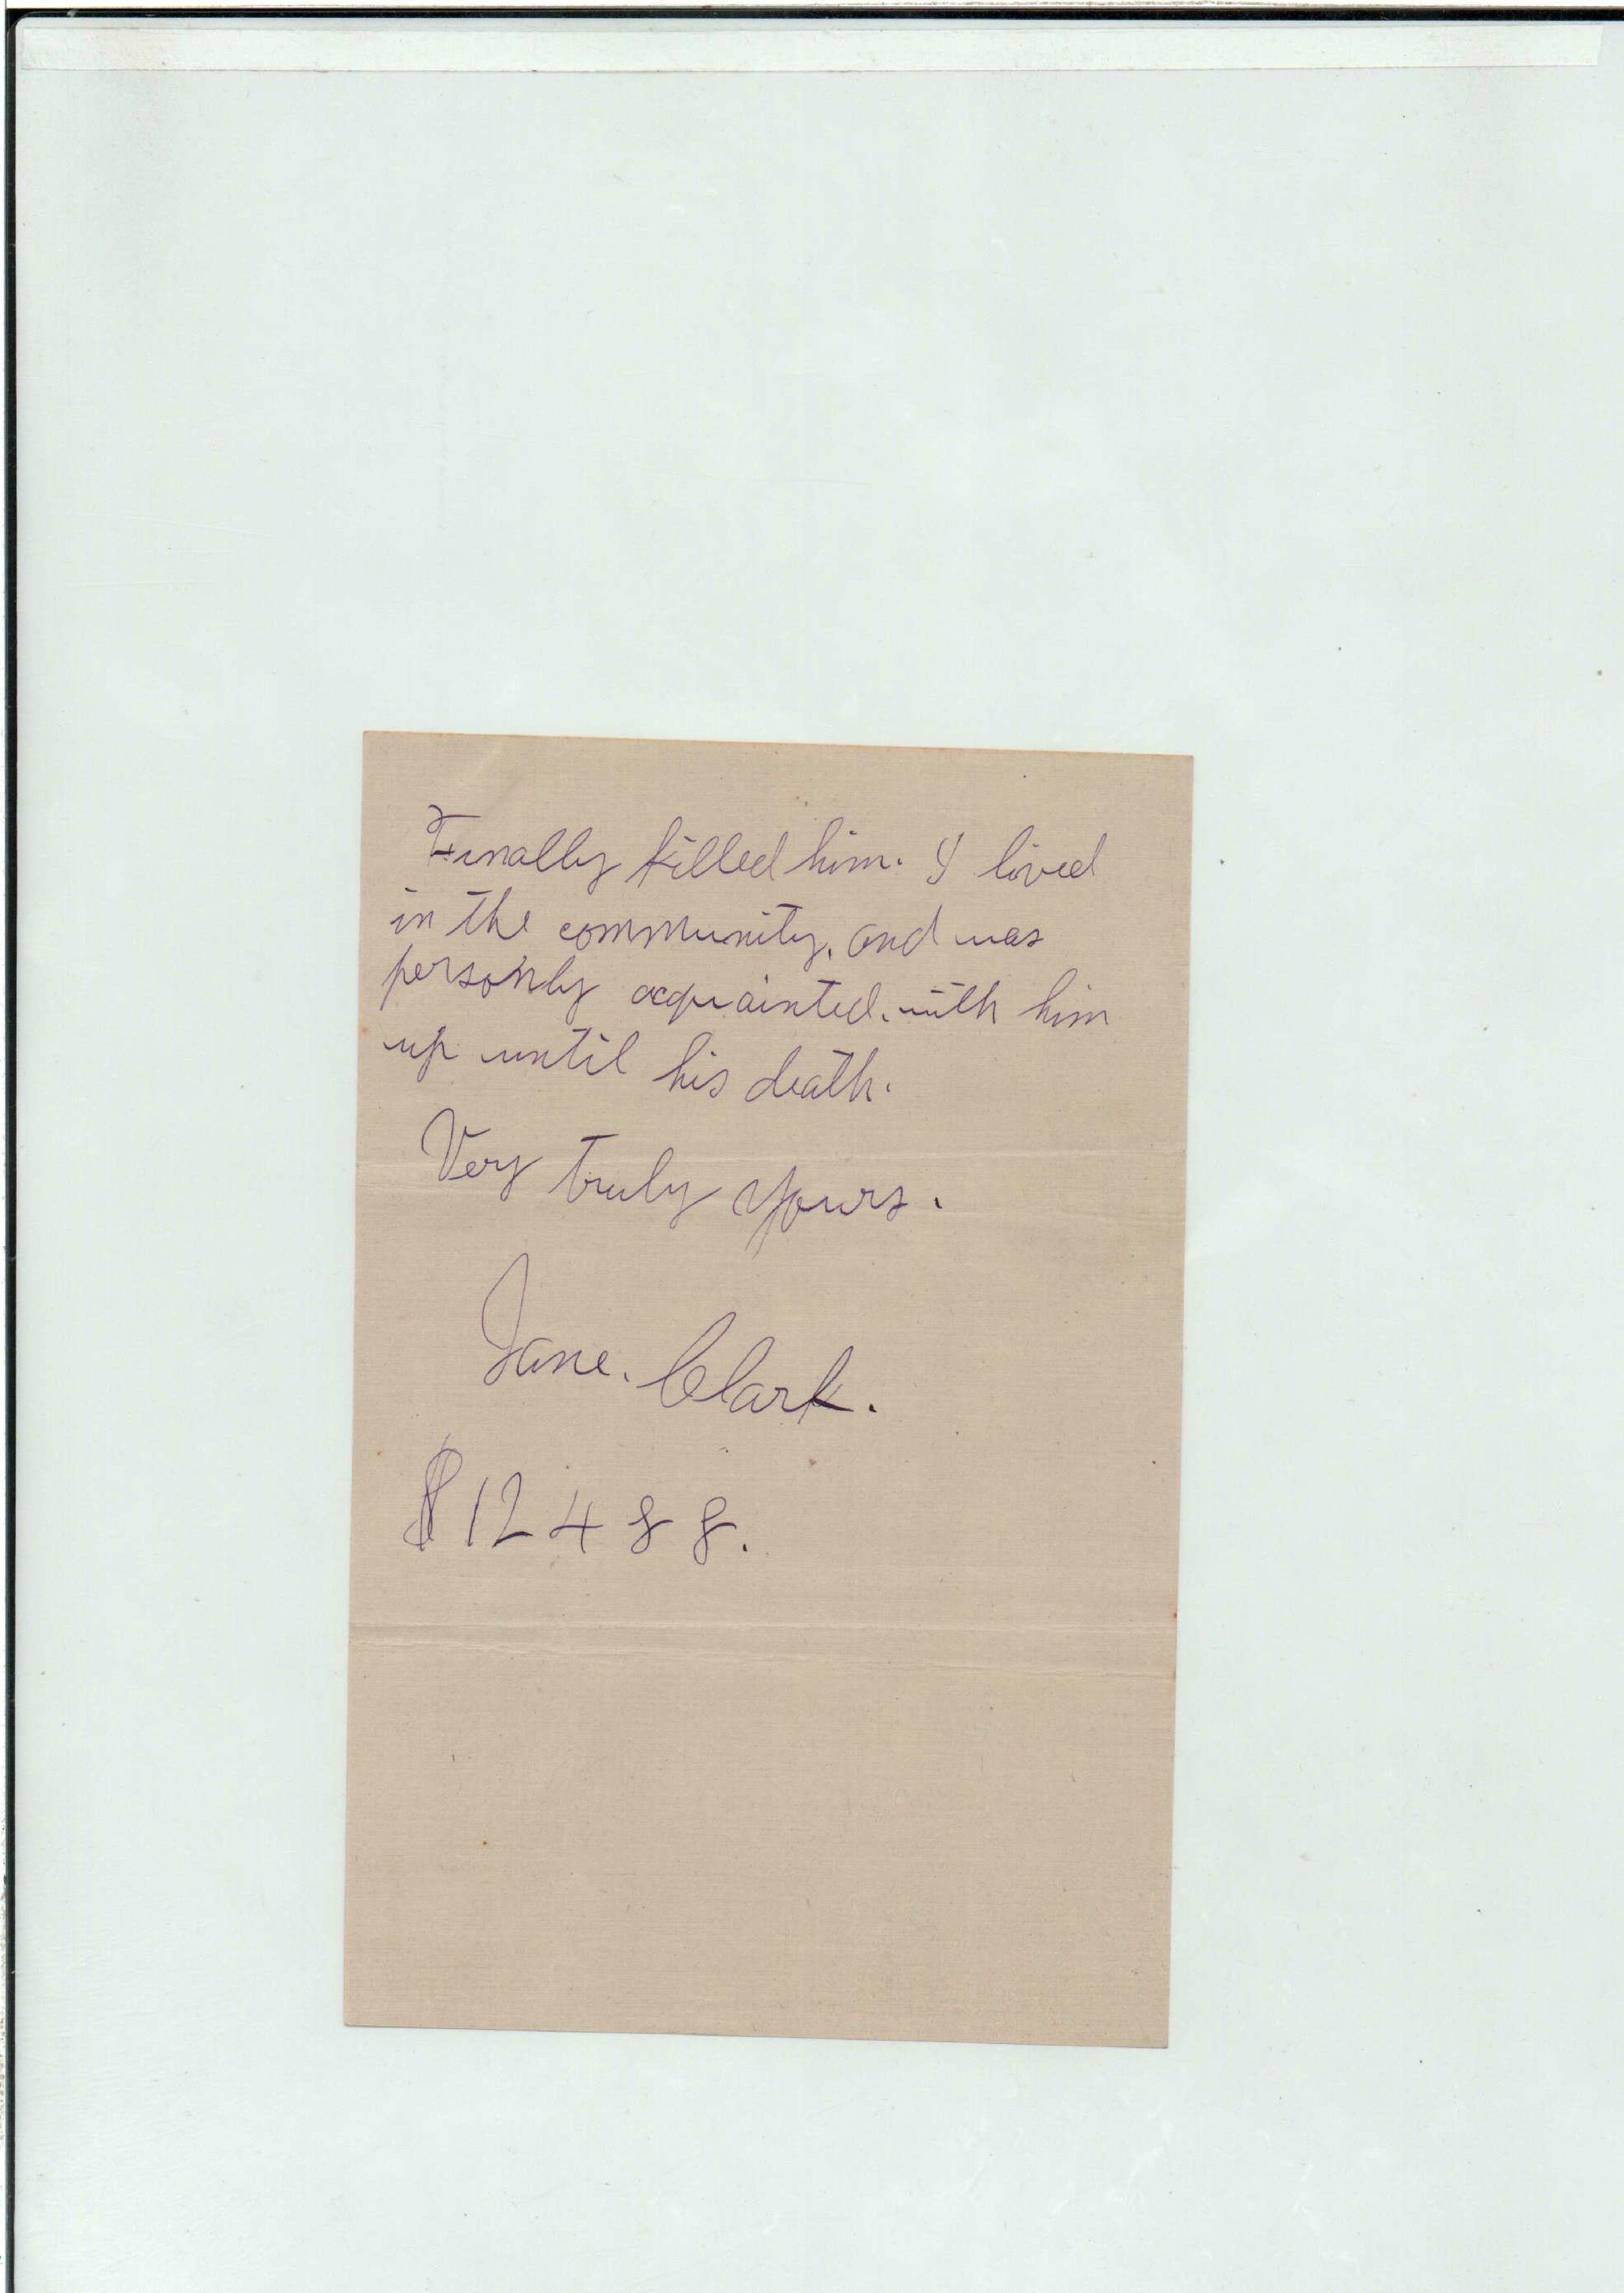 Finally killed him. I lived
in the community, and was
personly acquainted. with him
up until his death.
Very truly yours.
Jane. Clark.
$12488.